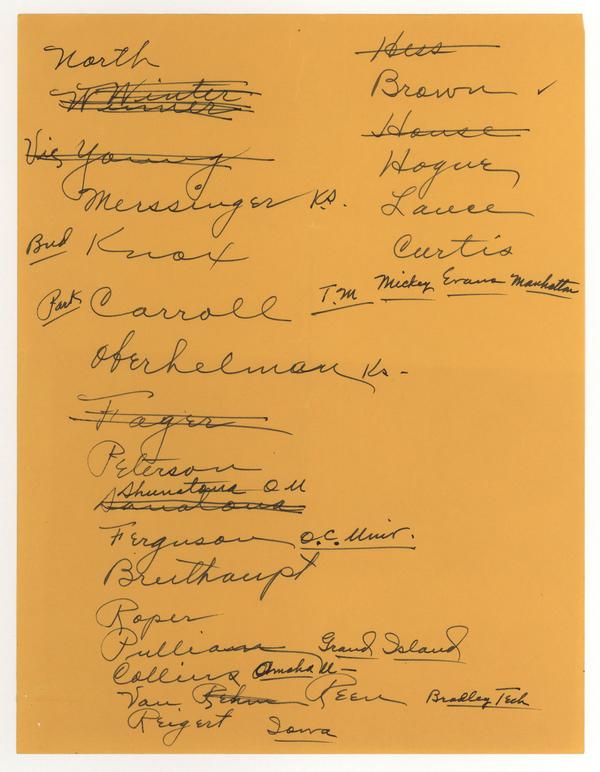 North
Winter
Winner
Vic Young
Merssinger Ks.
Bud Knox
Park Carroll
Oberhelman Ks -
Fager
Peterson
Shunatona O U
Ferguson O.C. Univ.
Breithaupt
Roper
Pulliam Grand Island
Collins Omaha U -
Van Reen Bradley Tech
Reigert Iowa
Hess
Brown ✓
House
Hogue
Lance
Curtis
T.M Mickey Evans Manhattan